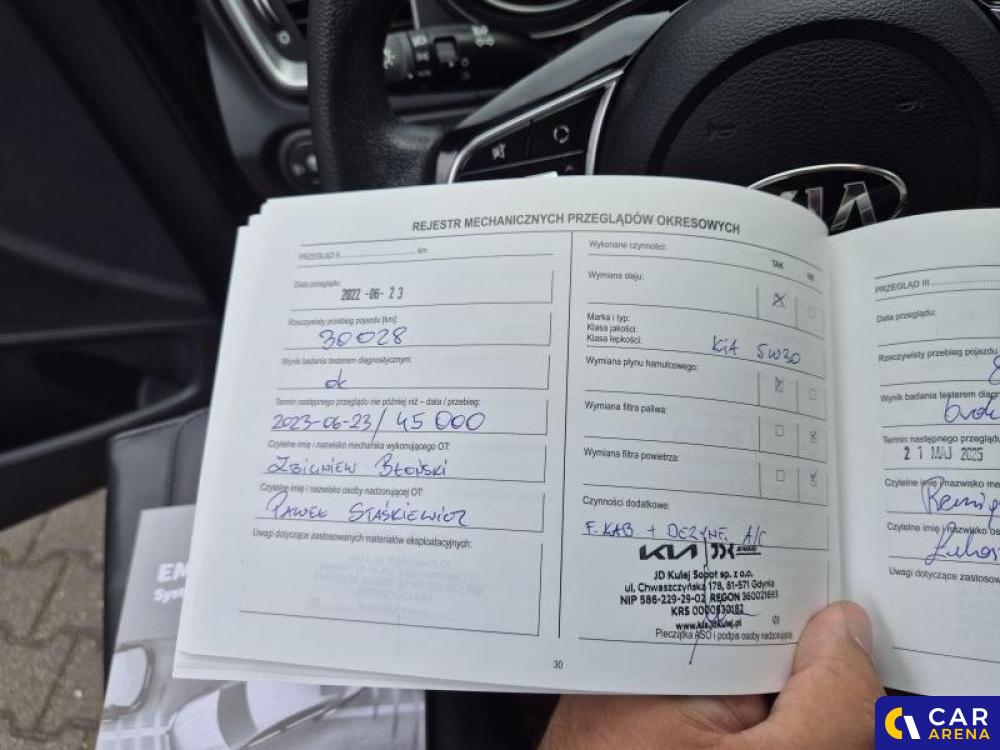 KIA
REJESTR MECHANICZNYCH PRZEGLĄDÓW OKRESOWYCH
PRZEGLĄD II .......................... km
Data przeglądu:
2022 -06- 23
Rzeczywisty przebieg pojazdu [km]:
30028
Wynik badania testerem diagnostycznym:
ok
Termin następnego przeglądu nie później niż – data / przebieg:
2023-06-23/ 45 000
Czytelne imię i nazwisko mechanika wykonującego OT:
ZBIGNIEW BŁOŃSKI
Czytelne imię i nazwisko osoby nadzorującej OT:
PAWEŁ STAŚKIEWICZ
Uwagi dotyczące zastosowanych materiałów eksploatacyjnych:
Wykonane czynności:
TAK NIE
Wymiana oleju:
Marka i typ:
Klasa jakości:
Klasa lepkości:
KIA 5W30
Wymiana płynu hamulcowego:
Wymiana filtra paliwa:
Wymiana filtra powietrza:
Czynności dodatkowe:
F. KAB + DEZYNF. A/C
KIA JDK
JD Kulej Sopot sp. z o.o.
ul. Chwaszczyńska 178, 81-571 Gdynia
NIP 586-229-29-02 REGON 360021693
KRS 0000530182
www.kia.jdkulej.pl
Pieczątka ASO i podpis osoby nadzorującej
30
PRZEGLĄD III
Data przeglądu:
Rzeczywisty przebieg pojazdu
Wynik badania testerem diagn
Termin następnego przeglądu
21 MAJ 2025
Czytelne imię i nazwisko me
Czytelne imię i nazwisko os
Uwagi dotyczące zastosow
CAR
ARENA